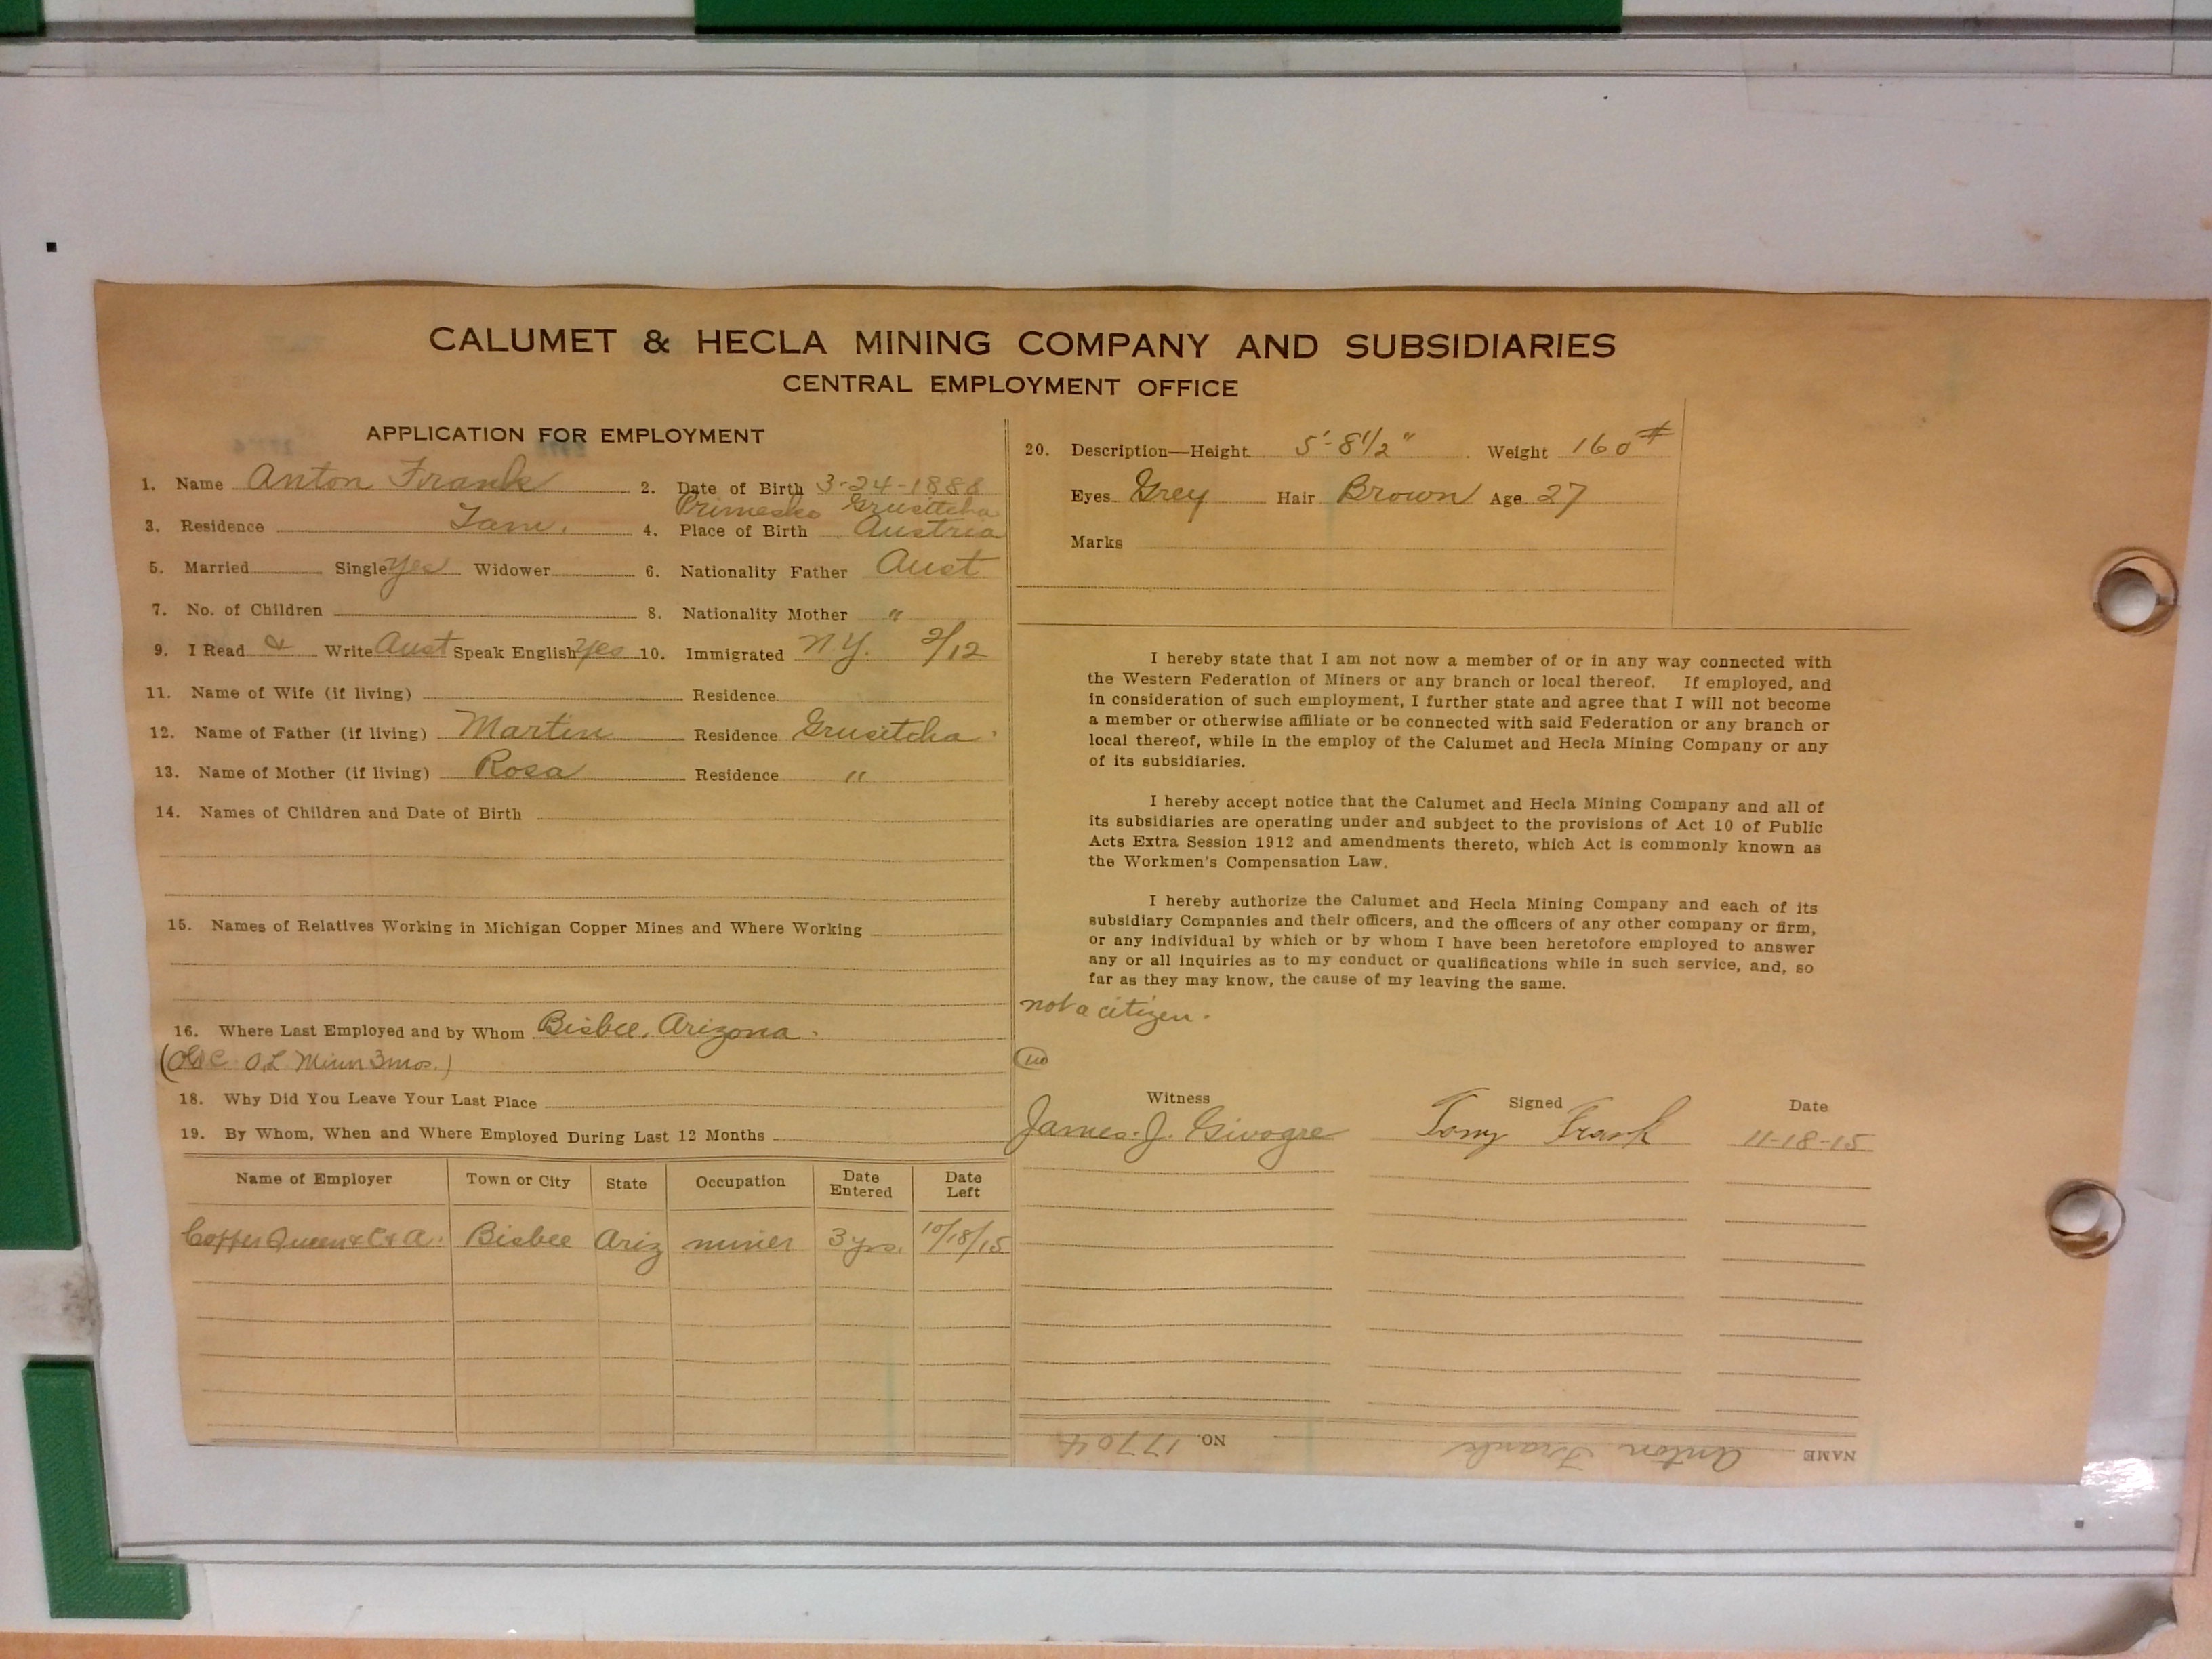 CALUMET & HECLA MINING COMPANY AND SUBSIDIARIES
CENTRAL EMPLOYMENT OFFICE
APPLICATION FOR EMPLOYMENT
1. Name Anton Frank 2. Date of Birth 3-24-1888
Grusitcha
3. Residence Tam. 4. Place of Birth Austria
5. Married Single Yes Widower 6. Nationality Father Aust
7. No. of Children 8. Nationality Mother "
9. I Read & Write Aust Speak English Yes 10. Immigrated N.Y. 2/12
11. Name of Wife (if living) Residence
12. Name of Father (if living) Martin Residence Grusitcha
13. Name of Mother (if living) Rosa Residence "
14. Names of Children and Date of Birth
15. Names of Relatives Working in Michigan Copper Mines and Where Working
16. Where Last Employed and by Whom Bisbee, Arizona.
3 mos.)
18. Why Did You Leave Your Last Place
19. By Whom, When and Where Employed During Last 12 Months
Name of Employer Town or City State Occupation Date Entered Date Left
Copper Queen & C & A. Bisbee Ariz miner 3 yrs. 10/18/15
20. Description—Height 5'-8 1/2" Weight 160#
Eyes Grey Hair Brown Age 27
Marks
I hereby state that I am not now a member of or in any way connected with
the Western Federation of Miners or any branch or local thereof. If employed, and
in consideration of such employment, I further state and agree that I will not become
a member or otherwise affiliate or be connected with said Federation or any branch or
local thereof, while in the employ of the Calumet and Hecla Mining Company or any
of its subsidiaries.
I hereby accept notice that the Calumet and Hecla Mining Company and all of
its subsidiaries are operating under and subject to the provisions of Act 10 of Public
Acts Extra Session 1912 and amendments thereto, which Act is commonly known as
the Workmen's Compensation Law.
I hereby authorize the Calumet and Hecla Mining Company and each of its
subsidiary Companies and their officers, and the officers of any other company or firm,
or any individual by which or by whom I have been heretofore employed to answer
any or all inquiries as to my conduct or qualifications while in such service, and, so
far as they may know, the cause of my leaving the same.
not a citizen.
Witness Signed Date
James. J. Tony Frank 11-18-15
NAME Anton Frank NO. 17704